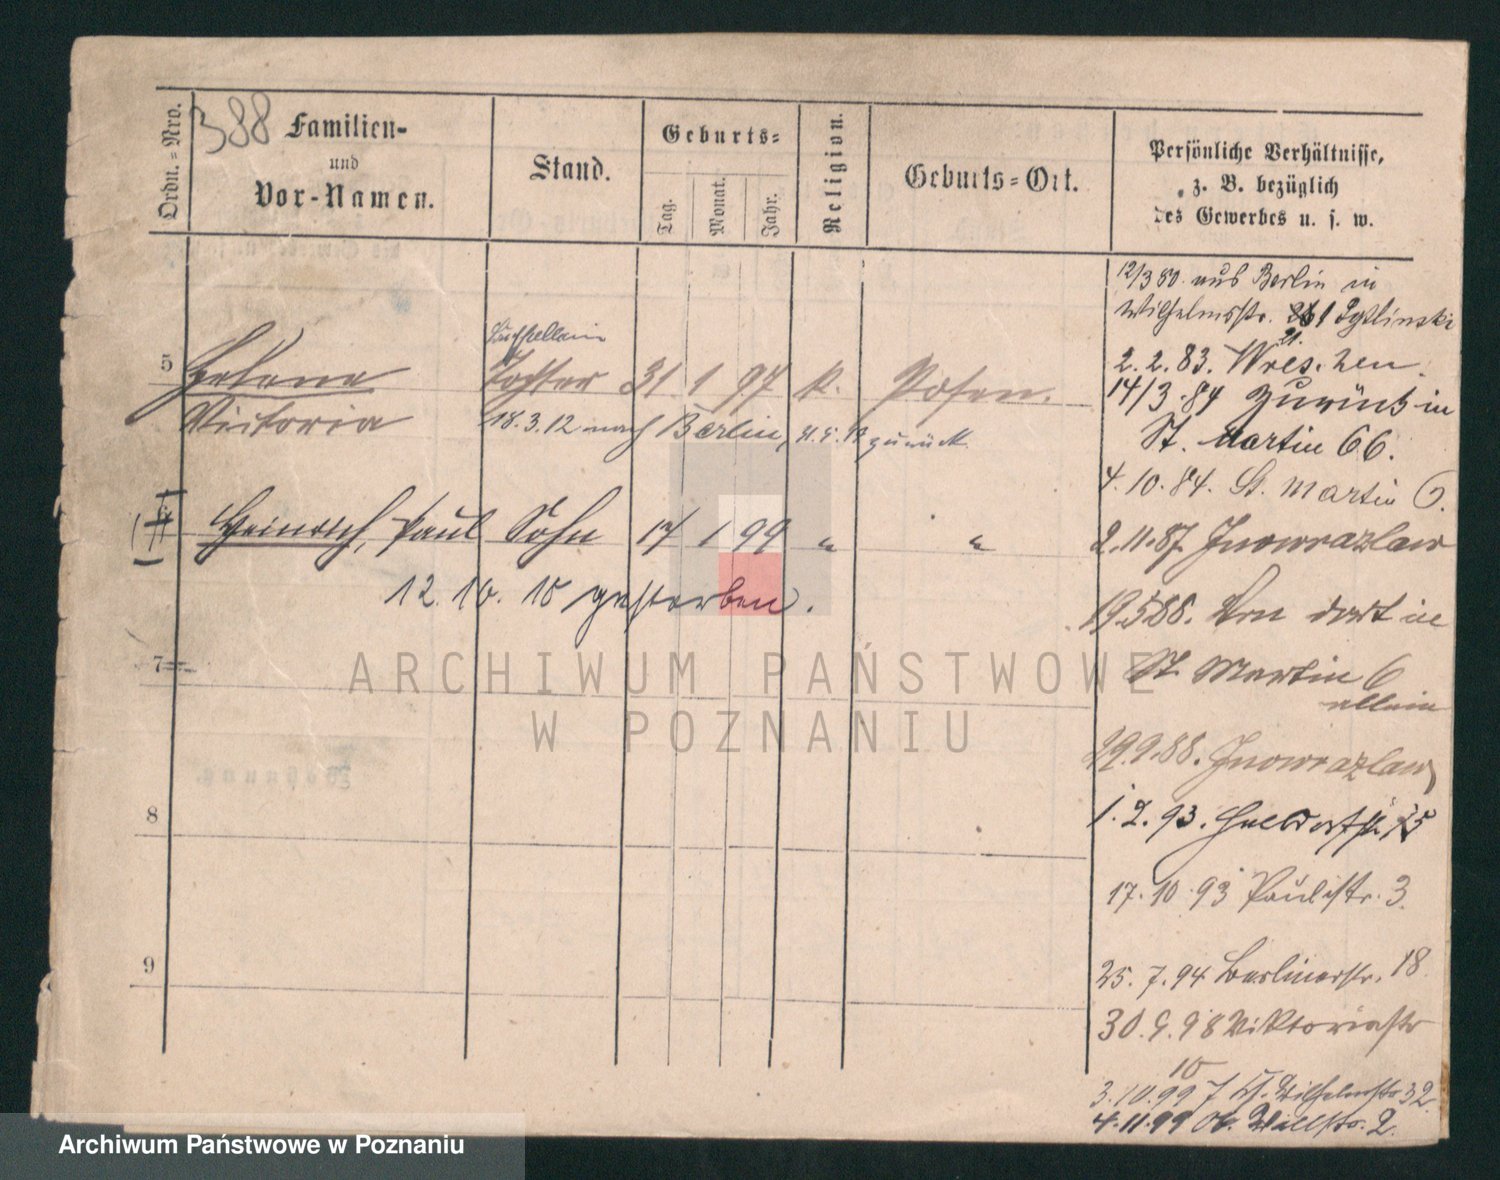 388
Ordn.=Nro.
Familien-
und
Vor-Namen.
Stand.
Geburts=
Tag.
Monat.
Jahr.
Religion.
Geburts=Ort.
Persönliche Verhältnisse,
z. B. bezüglich
des Gewerbes u. s. w.
5
Helene Tochter 31 1 97 k. Posen.
Victoria 18.3.12 nach Berlin, zurück
Heinrich, Paul Sohn 17 1 99 " "
12. 10. 15 gestorben.
7
8
9
12/3 80. aus Berlin in
Wilhelmsstr.
2.2.83. Wreschen.
14/3.84 zurück in
St. Martin 66.
4.10.84. St. Martin 6.
2.11.87. Inowrazlaw
19.5.88. Von dort in
St. Martin 6
allein
29.9.88. Inowrazlaw
1.2.93.
17.10.93 Paulistr. 3.
25.7.94 Berlinerstr. 18
30.9.98 Viktoriastr
10
3.10.99 Wilhelmstr 32
4.11.99 Ob. Wallstr. 2.
ARCHIWUM PAŃSTWOWE
W POZNANIU
Archiwum Państwowe w Poznaniu